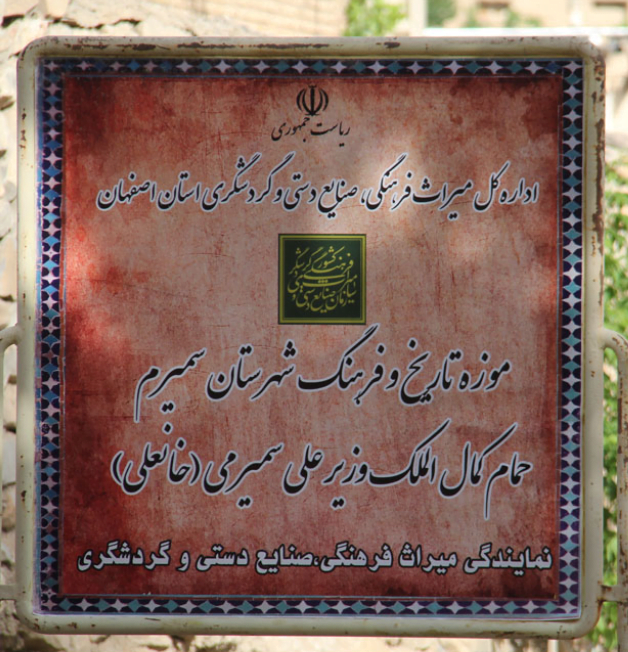 ریاست جمهوری
اداره کل میراث فرهنگی، صنایع دستی و گردشگری استان اصفهان
سازمان میراث فرهنگی صنایع دستی و گردشگری کشور
موزه تاریخ و فرهنگ شهرستان سمیرم
حمام کمال الملک وزیر علی سمیرمی (خانعلی)
نمایندگی میراث فرهنگی،صنایع دستی و گردشگری